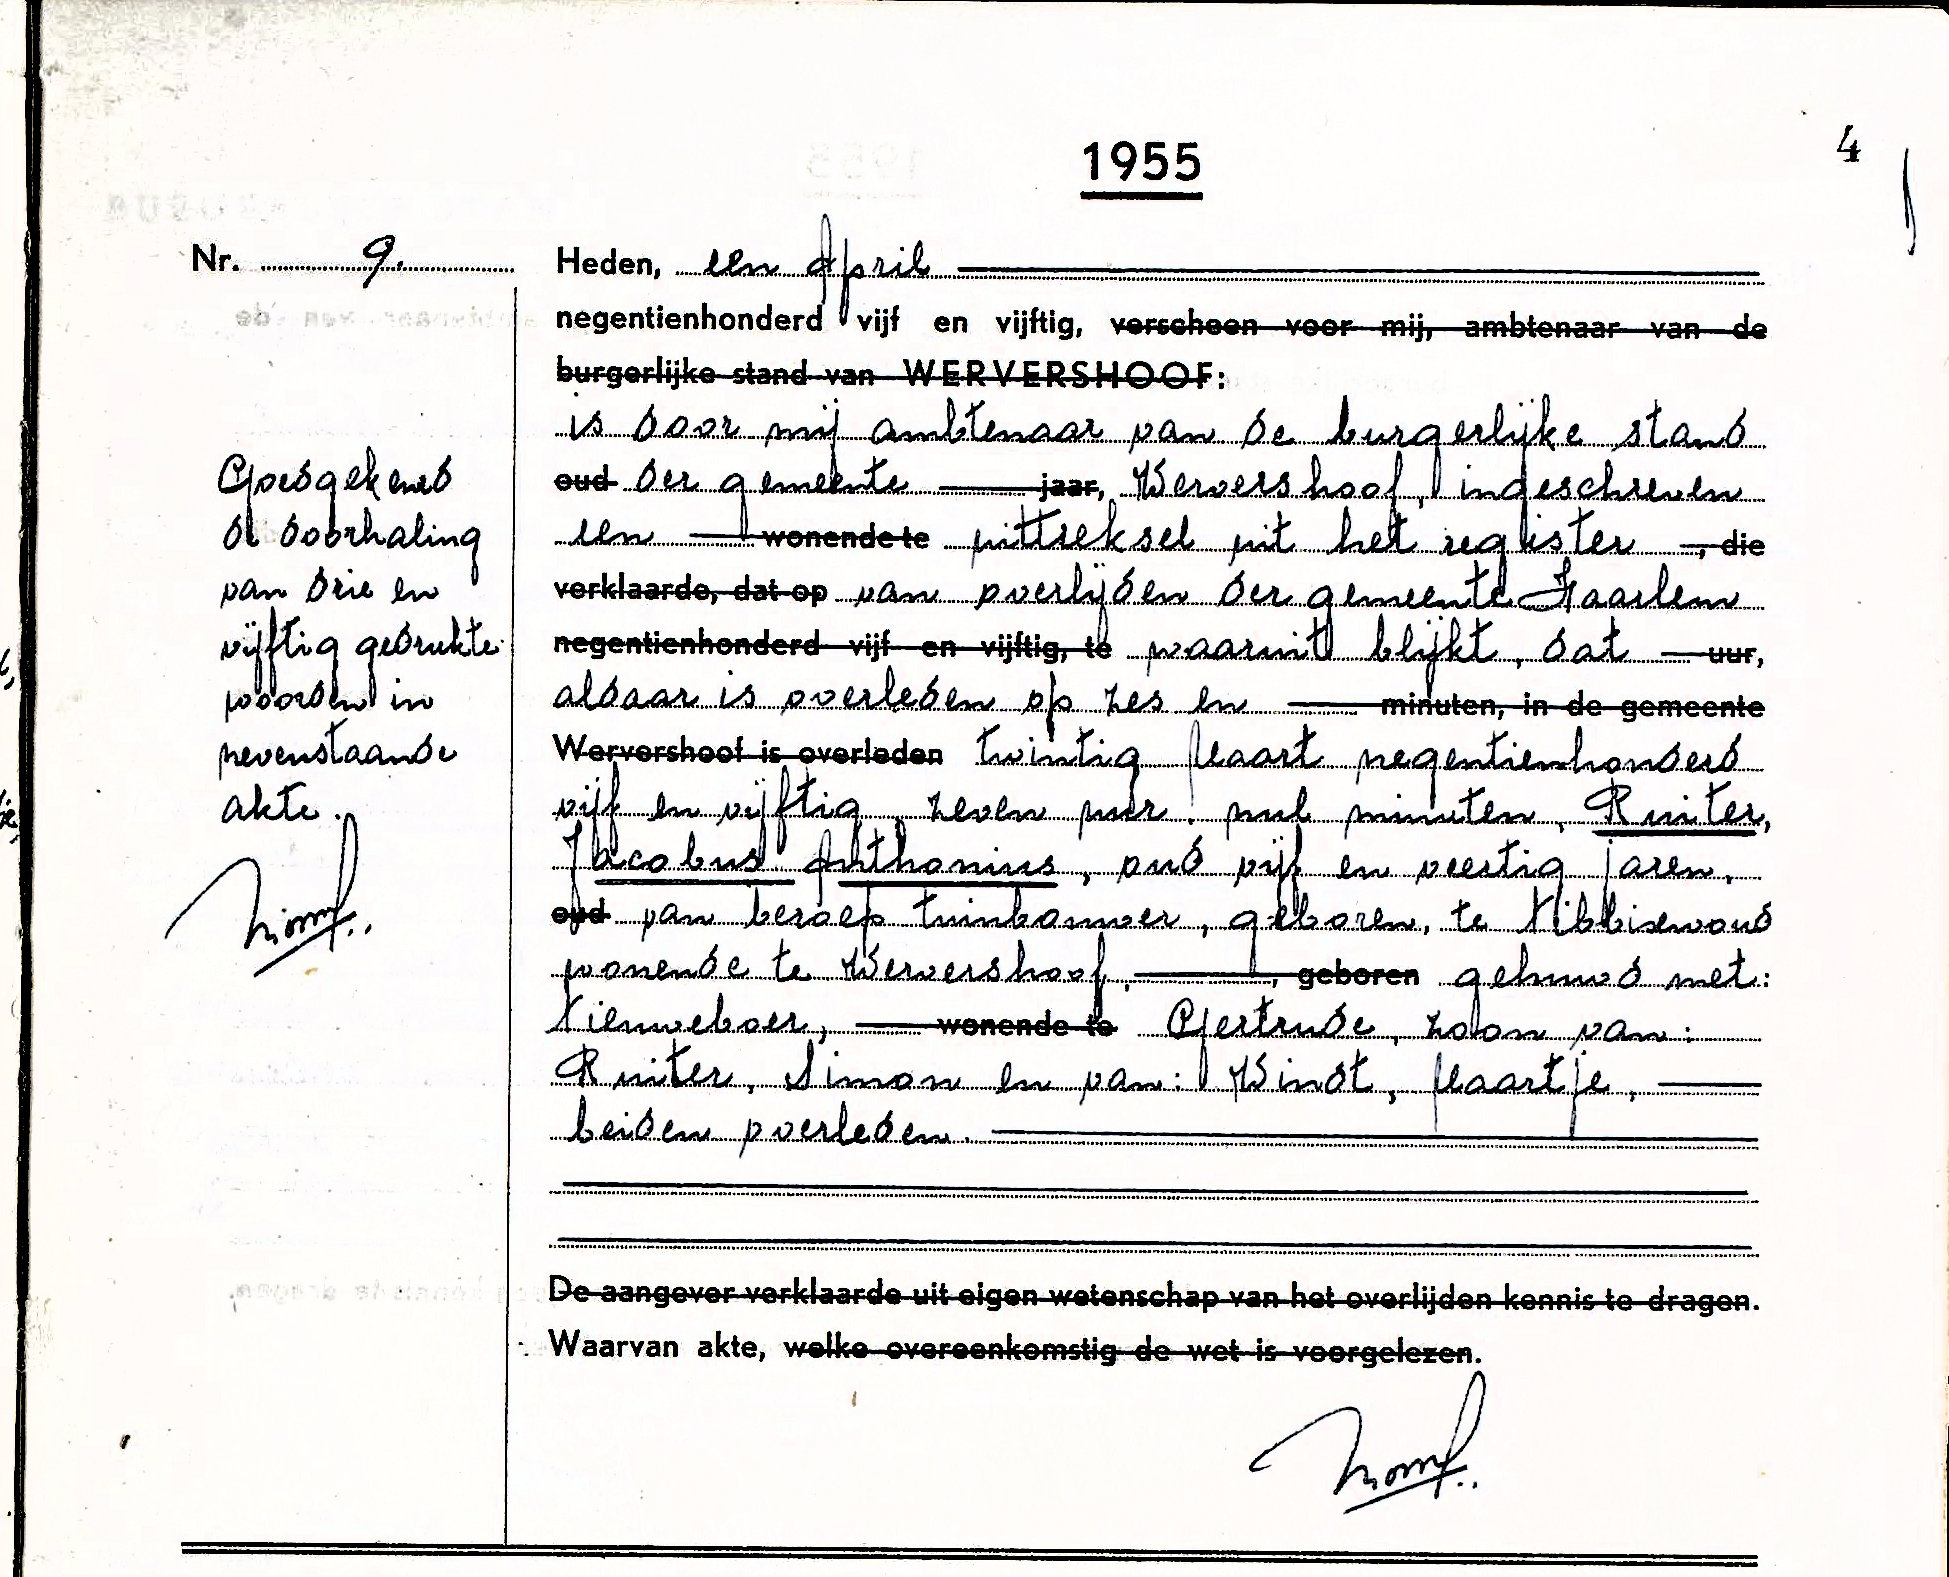 1955
4
Nr. 9.
Heden, een April
negentienhonderd vijf en vijftig, verscheen voor mij, ambtenaar van de
burgerlijke stand van WERVERSHOOF:
is door mij ambtenaar van de burgerlijke stand
oud der gemeente jaar, Wervershoof, ingeschreven
een wonende te uittreksel uit het register , die
verklaarde, dat op van overlijden der gemeente Haarlem
negentienhonderd vijf en vijftig, te waaruit blijkt, dat uur,
aldaar is overleden op zes en minuten, in de gemeente
Wervershoof is overleden twintig Maart negentienhonderd
vijf en vijftig, zeven uur, nul minuten, Ruiter,
Jacobus Anthonius, oud vijf en veertig jaren,
oud van beroep tuinbouwer, geboren, te Nibbixwoud
wonende te Wervershoof, , geboren gehuwd met:
Nieuweboer, wonende te Geertrude, zoon van:
Ruiter, Simon en van: Windt, Maartje,
beiden overleden.
De aangever verklaarde uit eigen wetenschap van het overlijden kennis te dragen.
Waarvan akte, welke overeenkomstig de wet is voorgelezen.
Goedgekeurd
de doorhaling
van drie en
vijftig gedrukte
woorden in
nevenstaande
akte.